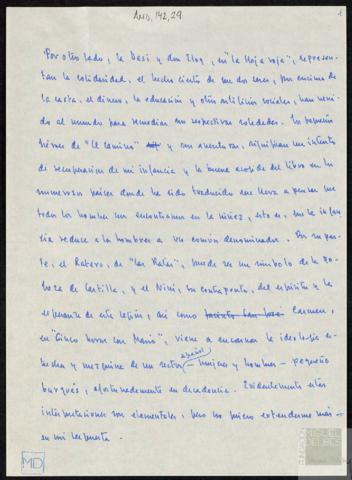 AMD, 142, 29
1
Por otro lado, la Desi y don Eloy, en "La hoja roja", represen-
tan la solidaridad, el hecho cierto de que dos seres, por encima de
la casta, el dinero, la educación y otros artificios sociales, han veni-
do al mundo para remediar sus respectivas soledades. Los pequeños
héroes de "El camino" y sus aventuras, significan un intento
de recuperación de mi infancia y la buena acogida del libro en los
numerosos países donde ha sido traducido me lleva a pensar que
todos los hombres nos encontramos en la niñez, esto es, que la infan-
cia reduce a los hombres a un común denominador. Por su par-
te, el Ratero, de "Las Ratas", puede ser un símbolo de la po-
breza de Castilla, y el Nini, su contrapunto, del espíritu y la
esperanza de esta región, así como Carmen,
en "Cinco horas con Mario", viene a encarnar la ideología es-
trecha y mezquina de un sector español – mujeres y hombres – pequeño
burgués, afortunadamente en decadencia. Evidentemente estas
interpretaciones son elementales, pero no quiero extenderme más
en mi respuesta.
MD
FUNDACIÓN
MIGUEL
DELIBES